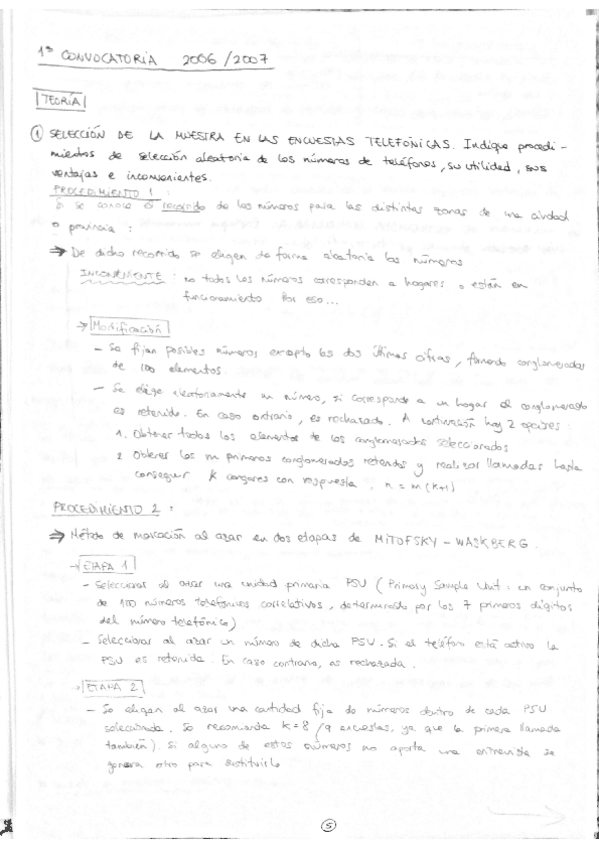 1ª CONVOCATORIA 2006/2007
TEORÍA
① SELECCIÓN DE LA MUESTRA EN LAS ENCUESTAS TELEFÓNICAS. Indique procedi-
mientos de selección aleatoria de los números de teléfonos, su utilidad, sus
ventajas e inconvenientes.
PROCEDIMIENTO 1 :
Si se conoce el recorrido de los números para las distintas zonas de una ciudad
o provincia :
⇒ De dicho recorrido se eligen de forma aleatoria los números
INCONVENIENTE : no todos los números corresponden a hogares o están en
funcionamiento Por eso...
→ Modificación
- Se fijan posibles números excepto las dos últimas cifras, formando conglomerados
de 100 elementos.
- Se elige aleatoriamente un número, si corresponde a un hogar el conglomerado
es retenido. En caso contrario, es rechazado. A continuación hay 2 opciones :
1. Obtener todos los elementos de los conglomerados seleccionados
2 Obtener los m primeros conglomerados retenidos y realizar llamadas hasta
conseguir K hogares con respuesta, n = m(k+1)
PROCEDIMIENTO 2 :
⇒ Método de marcación al azar en dos etapas de MITOFSKY - WASKBERG.
→ ETAPA 1
- Seleccionar al azar una unidad primaria PSU (Primary Sample Unit : un conjunto
de 100 números telefónicos correlativos, determinado por los 7 primeros dígitos
del número telefónico)
- Seleccionar al azar un número de dicha PSU. Si el teléfono está activo la
PSU es retenida. En caso contrario, es rechazada.
→ ETAPA 2
- Se eligen al azar una cantidad fija de números dentro de cada PSU
seleccionada. Se recomienda K=8 /9 encuestas, ya que la primera llamada
también). Si alguno de estos números no aporta una entrevista se
genera otro para sustituirlo
⑤